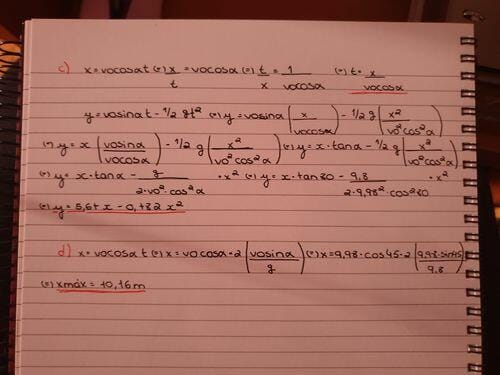 c) x = vocosα t (=) x/t = vocosα (=) t/x = 1/vocosα (=) t = x/vocosα
y = vosinα t - 1/2 gt² (=) y = vosinα (x/vocosα) - 1/2 g (x²/vo²cos²α)
(=) y = x (vosinα/vocosα) - 1/2 g (x²/vo²cos²α) (=) y = x·tanα - 1/2 g (x²/vo²cos²α)
(=) y = x·tanα - g/2·vo²·cos²α · x² (=) y = x·tan80 - 9,8/2·9,98²·cos²80 · x²
(=) y = 5,67x - 0,782 x²
d) x = vocosα t (=) x = vocosα · 2 (vosinα/g) (=) x = 9,98·cos45·2 (9,98·sin45/9,8)
(=) xmáx = 10,16m